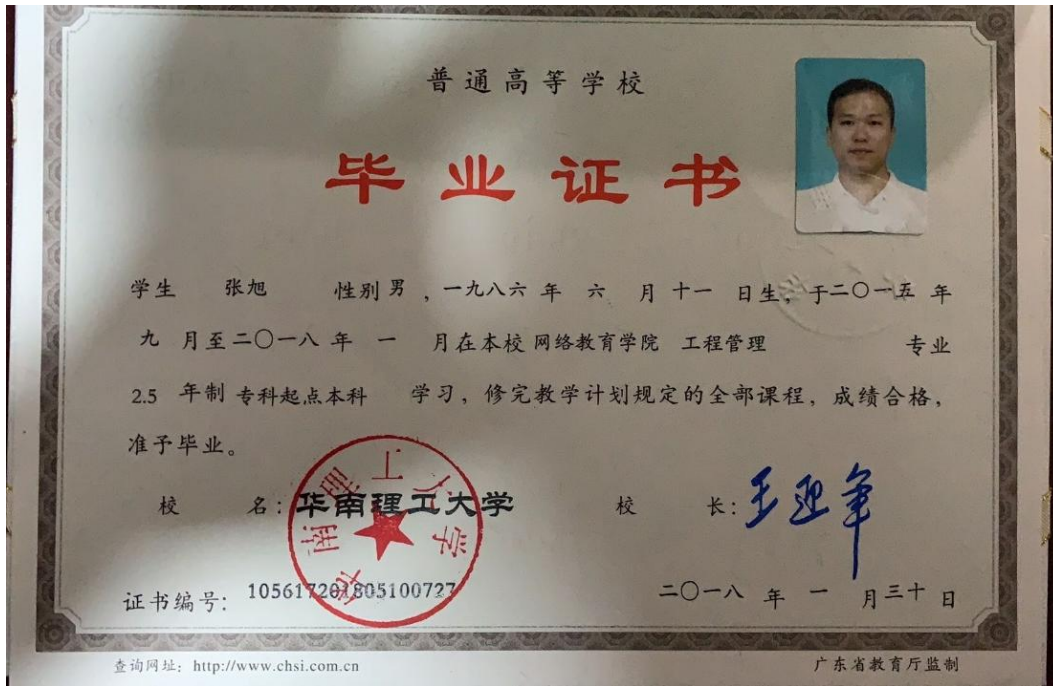 普通高等学校
毕业证书
学生 张旭 性别 男 , 一九八六 年 六 月 十一 日生, 于二〇一五 年
九 月至二〇一八 年 一 月在本校 网络教育学院 工程管理 专业
2.5 年制 专科起点本科 学习, 修完教学计划规定的全部课程, 成绩合格,
准予毕业。
校 名: 华南理工大学 校 长: 王迎军
华南理工大学
证书编号: 105617201805100727 二〇一八 年 一 月三十 日
查询网址: http://www.chsi.com.cn 广东省教育厅监制